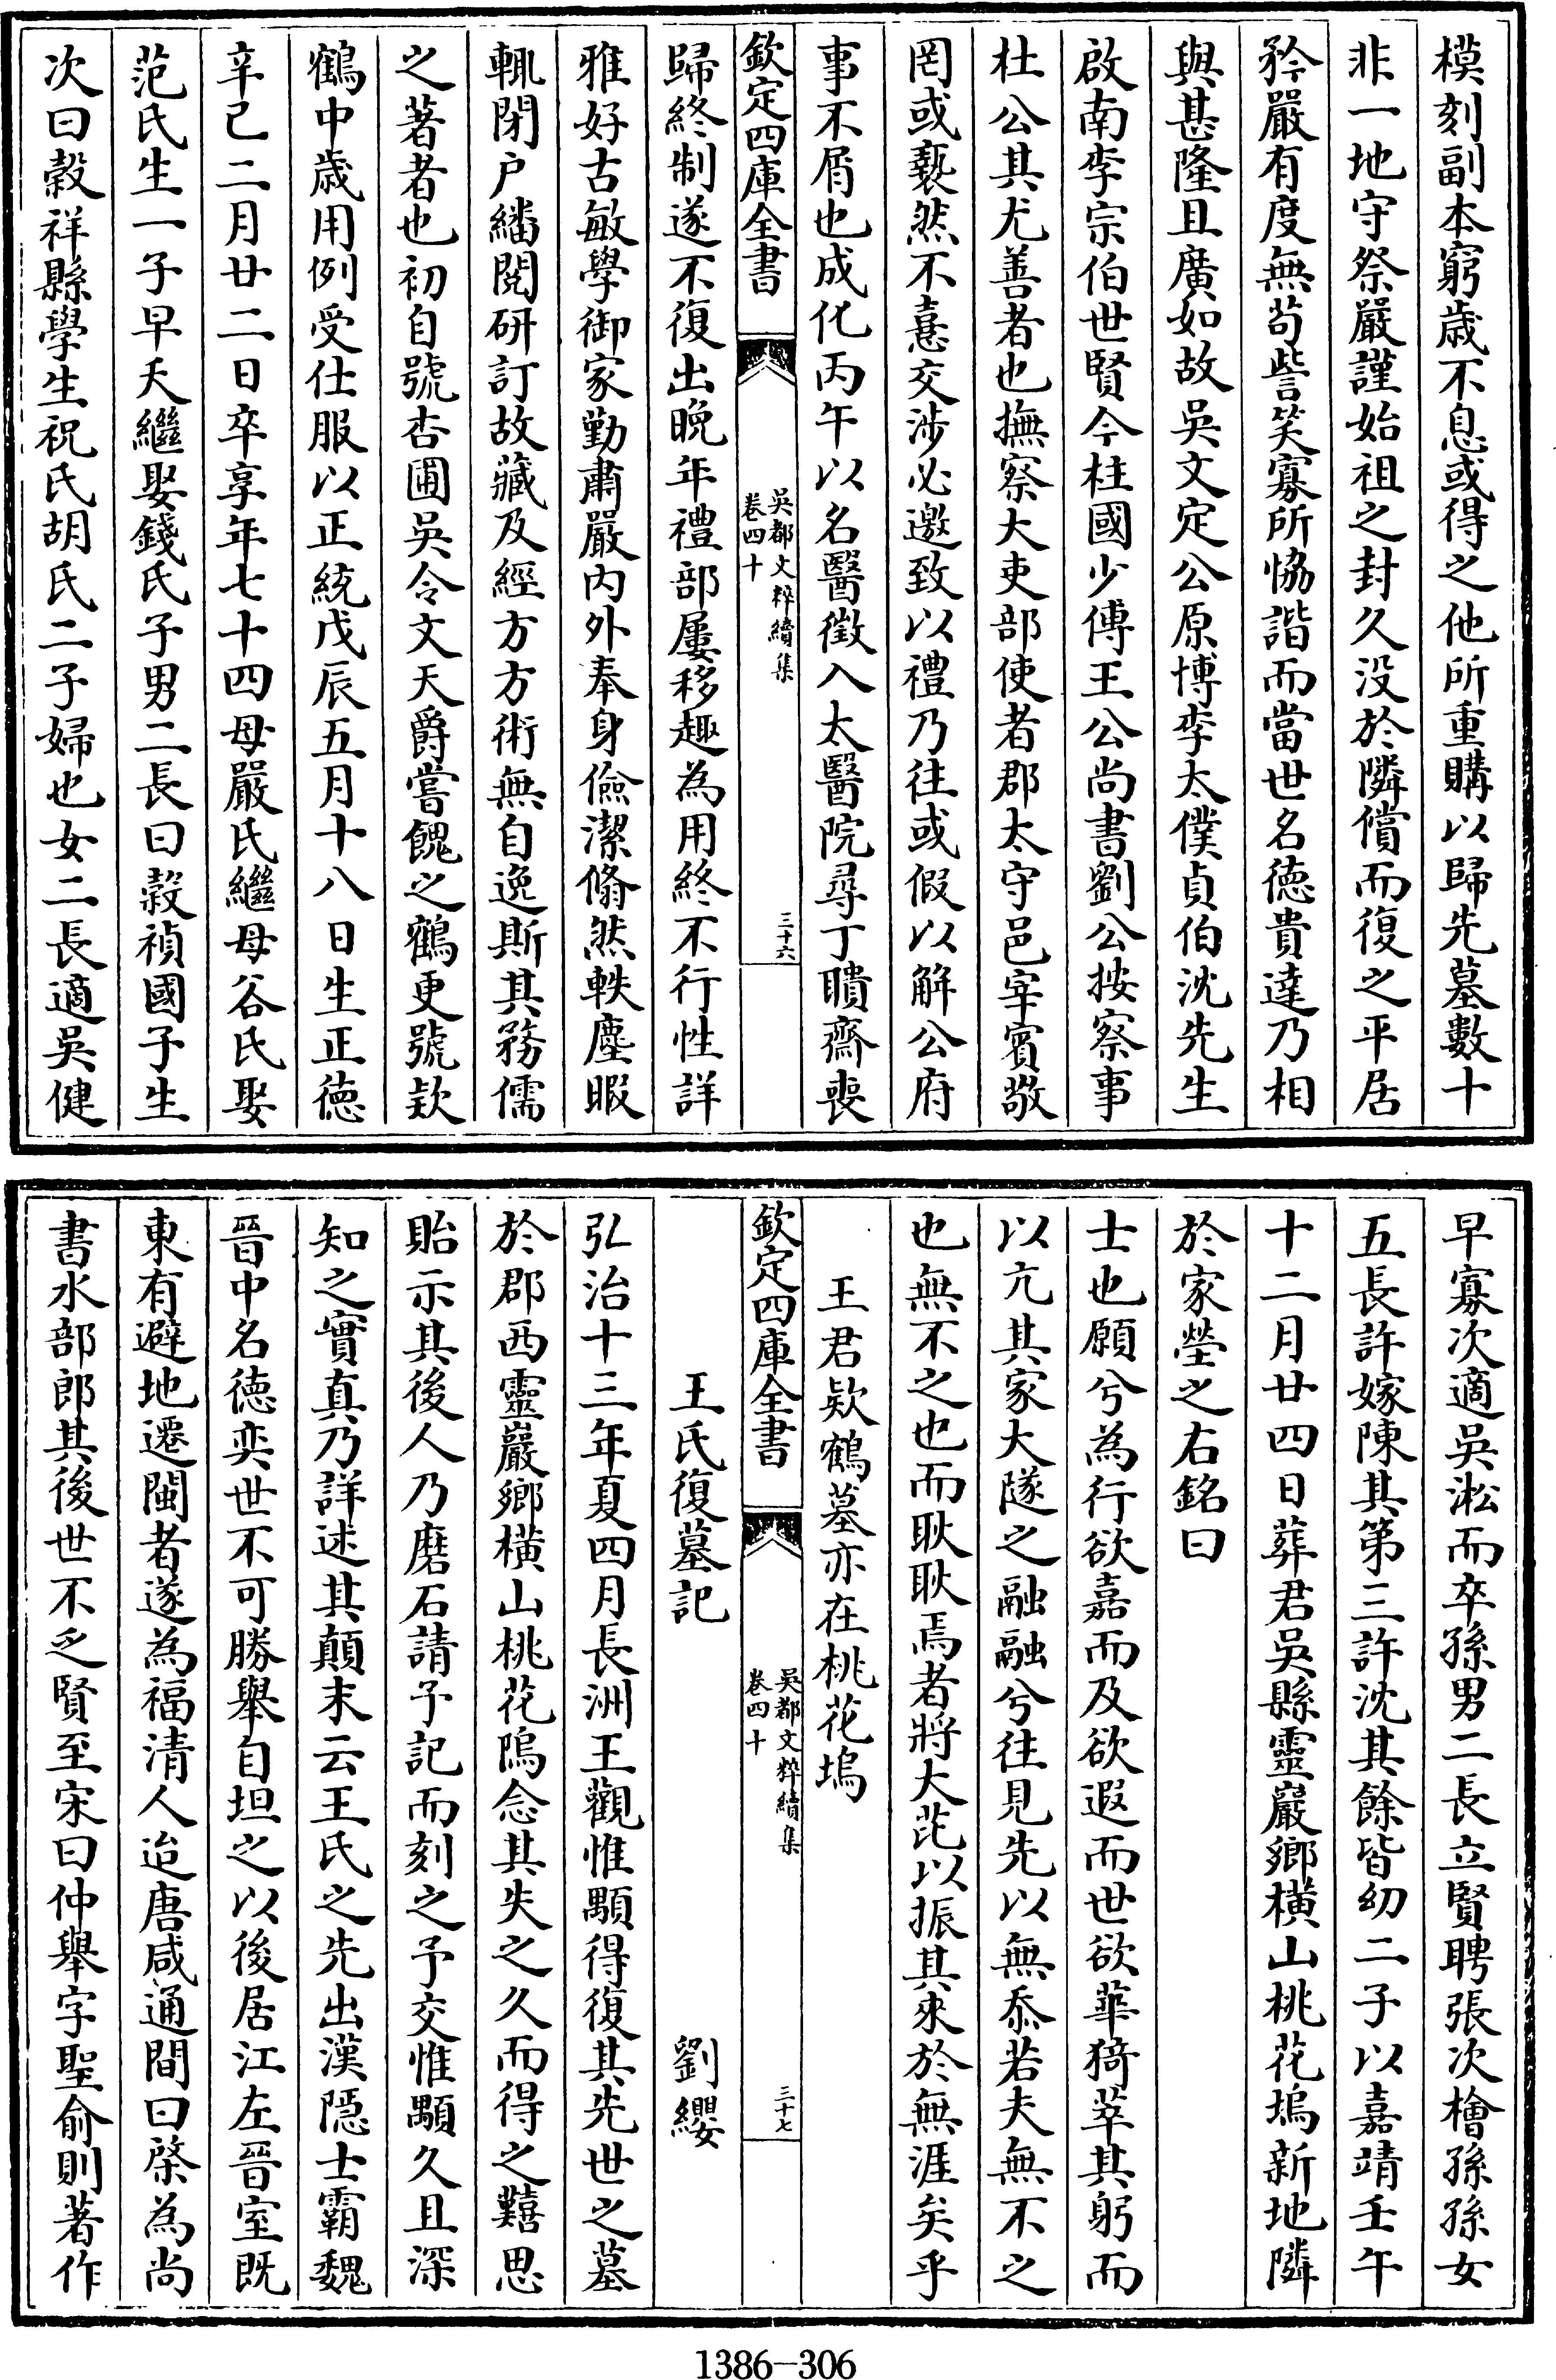 模刻副本窮歲不息或得之他所重購以歸先墓數十
非一地守祭嚴謹始祖之封久没於隣償而復之平居
矜嚴有度無苟訾笑寡所恊諧而當世名德貴達乃相
與甚隆且廣如故吳文定公原博李太僕貞伯沈先生
啟南李宗伯世賢今柱國少傅王公尚書劉公按察事
杜公其尤善者也撫察大吏部使者郡太守邑宰賓敬
罔或褻然不憙交涉必邀致以禮乃往或假以解公府
事不屑也成化丙午以名醫徵入太醫院尋丁瞶齋喪
欽定四庫全書
吳都文粹續集
卷四十
三十六
歸終制遂不復出晚年禮部屢移趣為用終不行性詳
雅好古敏學御家勤肅嚴内外奉身儉潔翛然軼塵暇
輒閉户繙閱研訂故藏及經方方術無自逸斯其務儒
之著者也初自號杏圃吳令文天爵嘗餽之鶴更號欵
鶴中歲用例受仕服以正統戊辰五月十八日生正德
辛已二月廿二日卒享年七十四母嚴氏繼母谷氏娶
范氏生一子早夭繼娶錢氏子男二長曰榖禎國子生
次曰榖祥縣學生祝氏胡氏二子婦也女二長適吳健
早寡次適吳淞而卒孫男二長立賢聘張次檜孫孫女
五長許嫁陳其第三許沈其餘皆幼二子以嘉靖壬午
十二月廿四日葬君吳縣靈巖鄉横山桃花塢新地隣
於家塋之右銘曰
士也願兮為行欲嘉而及欲遐而世欲華猗萃其躬而
以亢其家大隧之融融兮往見先以無忝若夫無不之
也無不之也而耿耿焉者將大茈以振其來於無涯矣乎
王君欵鶴墓亦在桃花塢
欽定四庫全書
吳都文粹續集
卷四十
三十七
王氏復墓記　劉纓
弘治十三年夏四月長洲王觀惟顒得復其先世之墓
於郡西靈巖鄉横山桃花隖念其失之久而得之囏思
貽示其後人乃磨石請予記而刻之予交惟顒久且深
知之實真乃詳述其顛末云王氏之先出漢隱士霸魏
晉中名德奕世不可勝舉自坦之以後居江左晉室既
東有避地遷閩者遂為福清人迨唐咸通間曰棨為尚
書水部郎其後世不乏賢至宋曰仲舉字聖俞則著作
1386-306